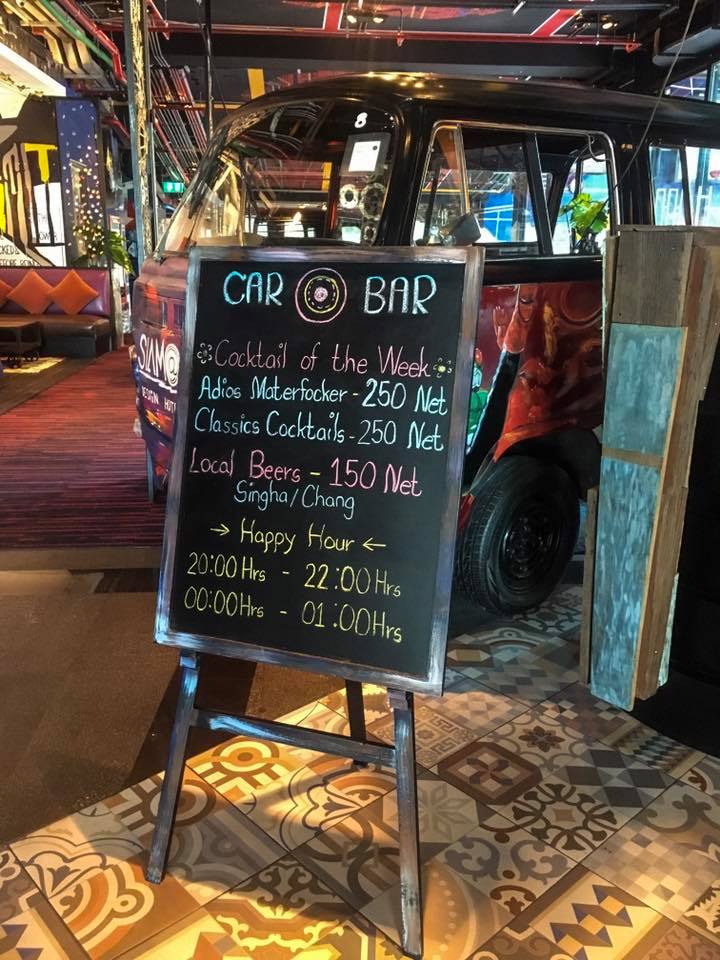 CAR BAR
Cocktail of the Week
Adios Moterfocker - 250 Net
Classics Cocktails - 250 Net
Local Beers - 150 Net
Singha/Chang
→ Happy Hour ←
20:00 Hrs - 22:00 Hrs
00:00 Hrs - 01:00 Hrs
SIAM@
DESIGN HOT
8